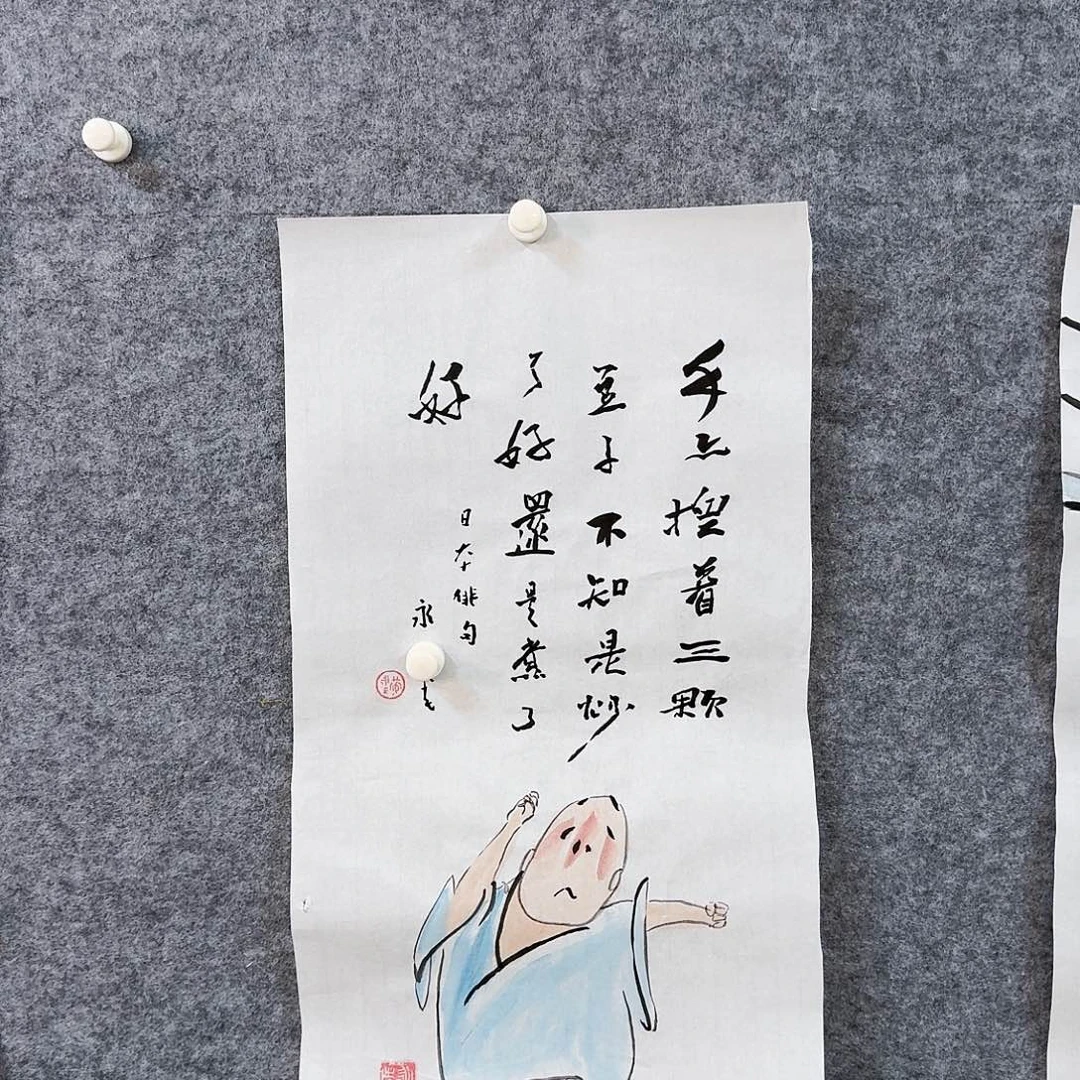 手上捏着三顆
豆子不知是炒
了好還是煮了
好
日本俳句
永